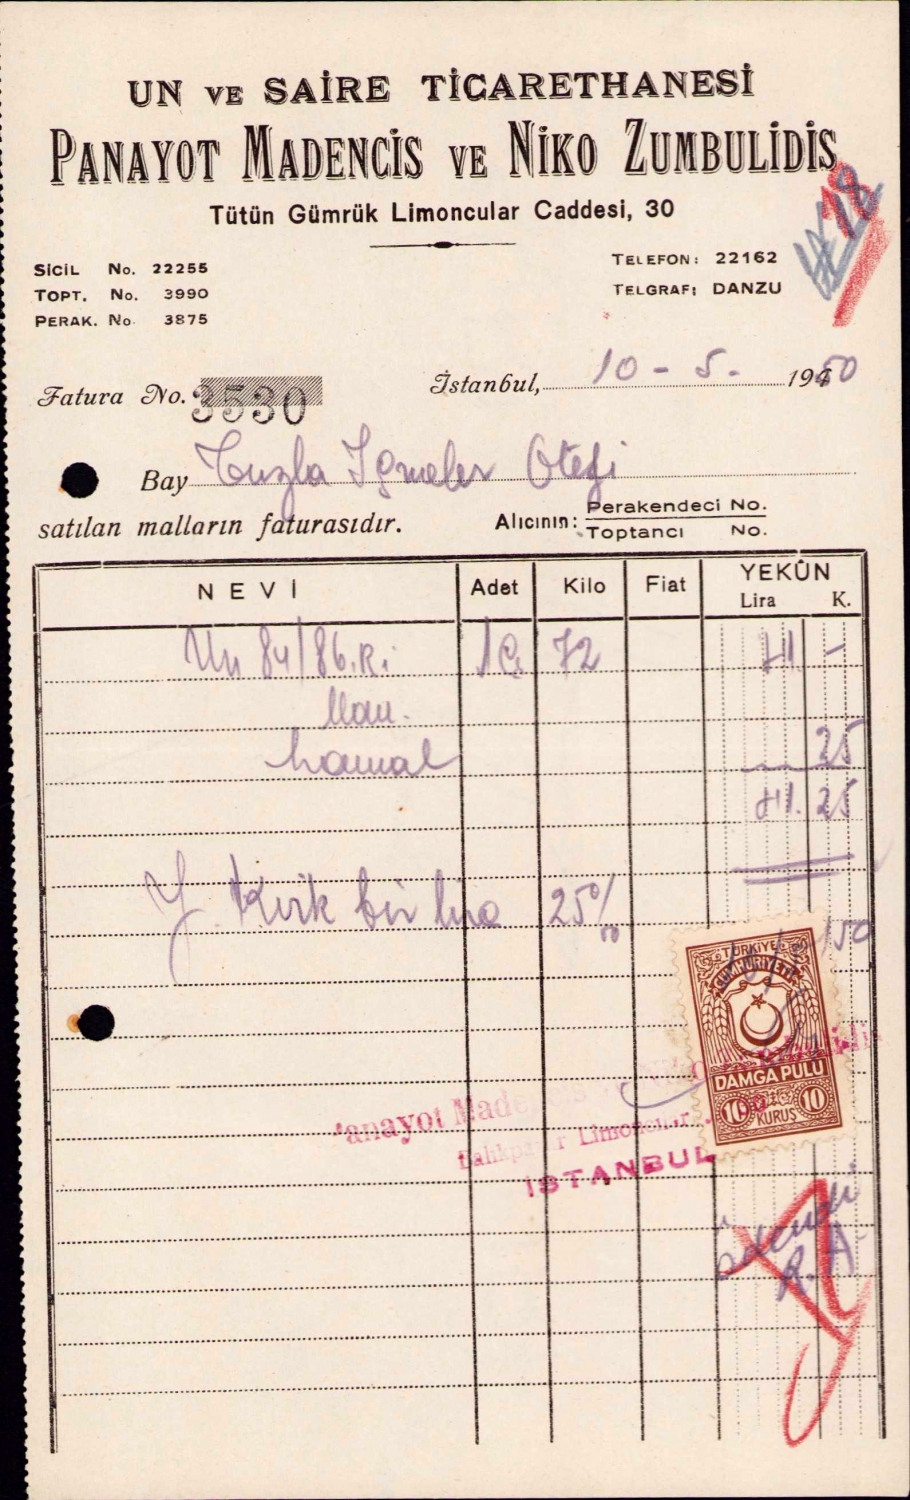 UN VE SAİRE TİCARETHANESİ
PANAYOT MADENCİS VE NİKO ZUMBULİDİS
Tütün Gümrük Limoncular Caddesi, 30
SİCİL No. 22255
TOPT. No. 3990
PERAK. No. 3875
TELEFON: 22162
TELGRAF: DANZU
18
Fatura No. 3530
İstanbul, 10 - 5 - 1950
Bay Tuzla İçmeler Oteli
satılan malların faturasıdır.
Alıcının: Perakendeci No.
Toptancı No.
NEVİ Adet Kilo Fiat YEKÛN
Lira K.
Un 84/86 1 Ç 72 41 -
hamal 25
41. 25
Y. Kırk bir lira 25%
TÜRKİYE
CUMHURİYETİ
DAMGA PULU
10 KURUŞ 10
Panayot
Limoncular
İSTANBUL
Ödendi
R.A.